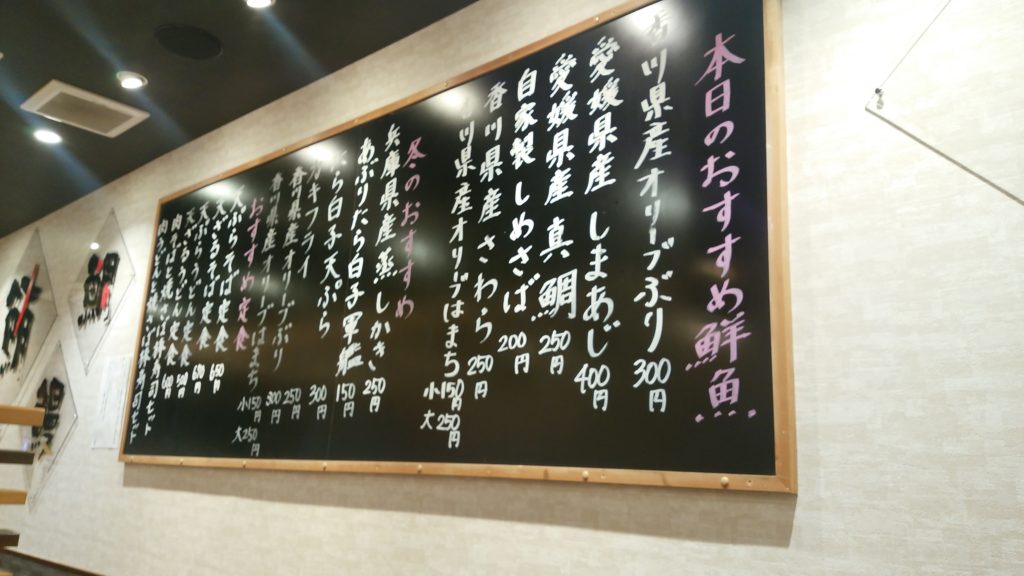 本日のおすすめ鮮魚
香川県産オリーブぶり 300円
愛媛県産 しまあじ 400円
愛媛県産 真鯛 250円
自家製 しめさば 200円
香川県産 さわら 250円
香川県産オリーブはまち 小150円 大250円
冬のおすすめ
兵庫県産蒸しかき 250円
あぶりたら白子軍艦 150円
たら白子天ぷら 300円
カキフライ 250円
香川県産オリーブぶり 300円
香川県産オリーブはまち 小150円 大250円
おすすめ定食
天ぷらそば定食
天ざるそば定食 650円
天ぷらうどん定食
天ざるうどん定食
肉そば定食
肉うどん定食
鯛